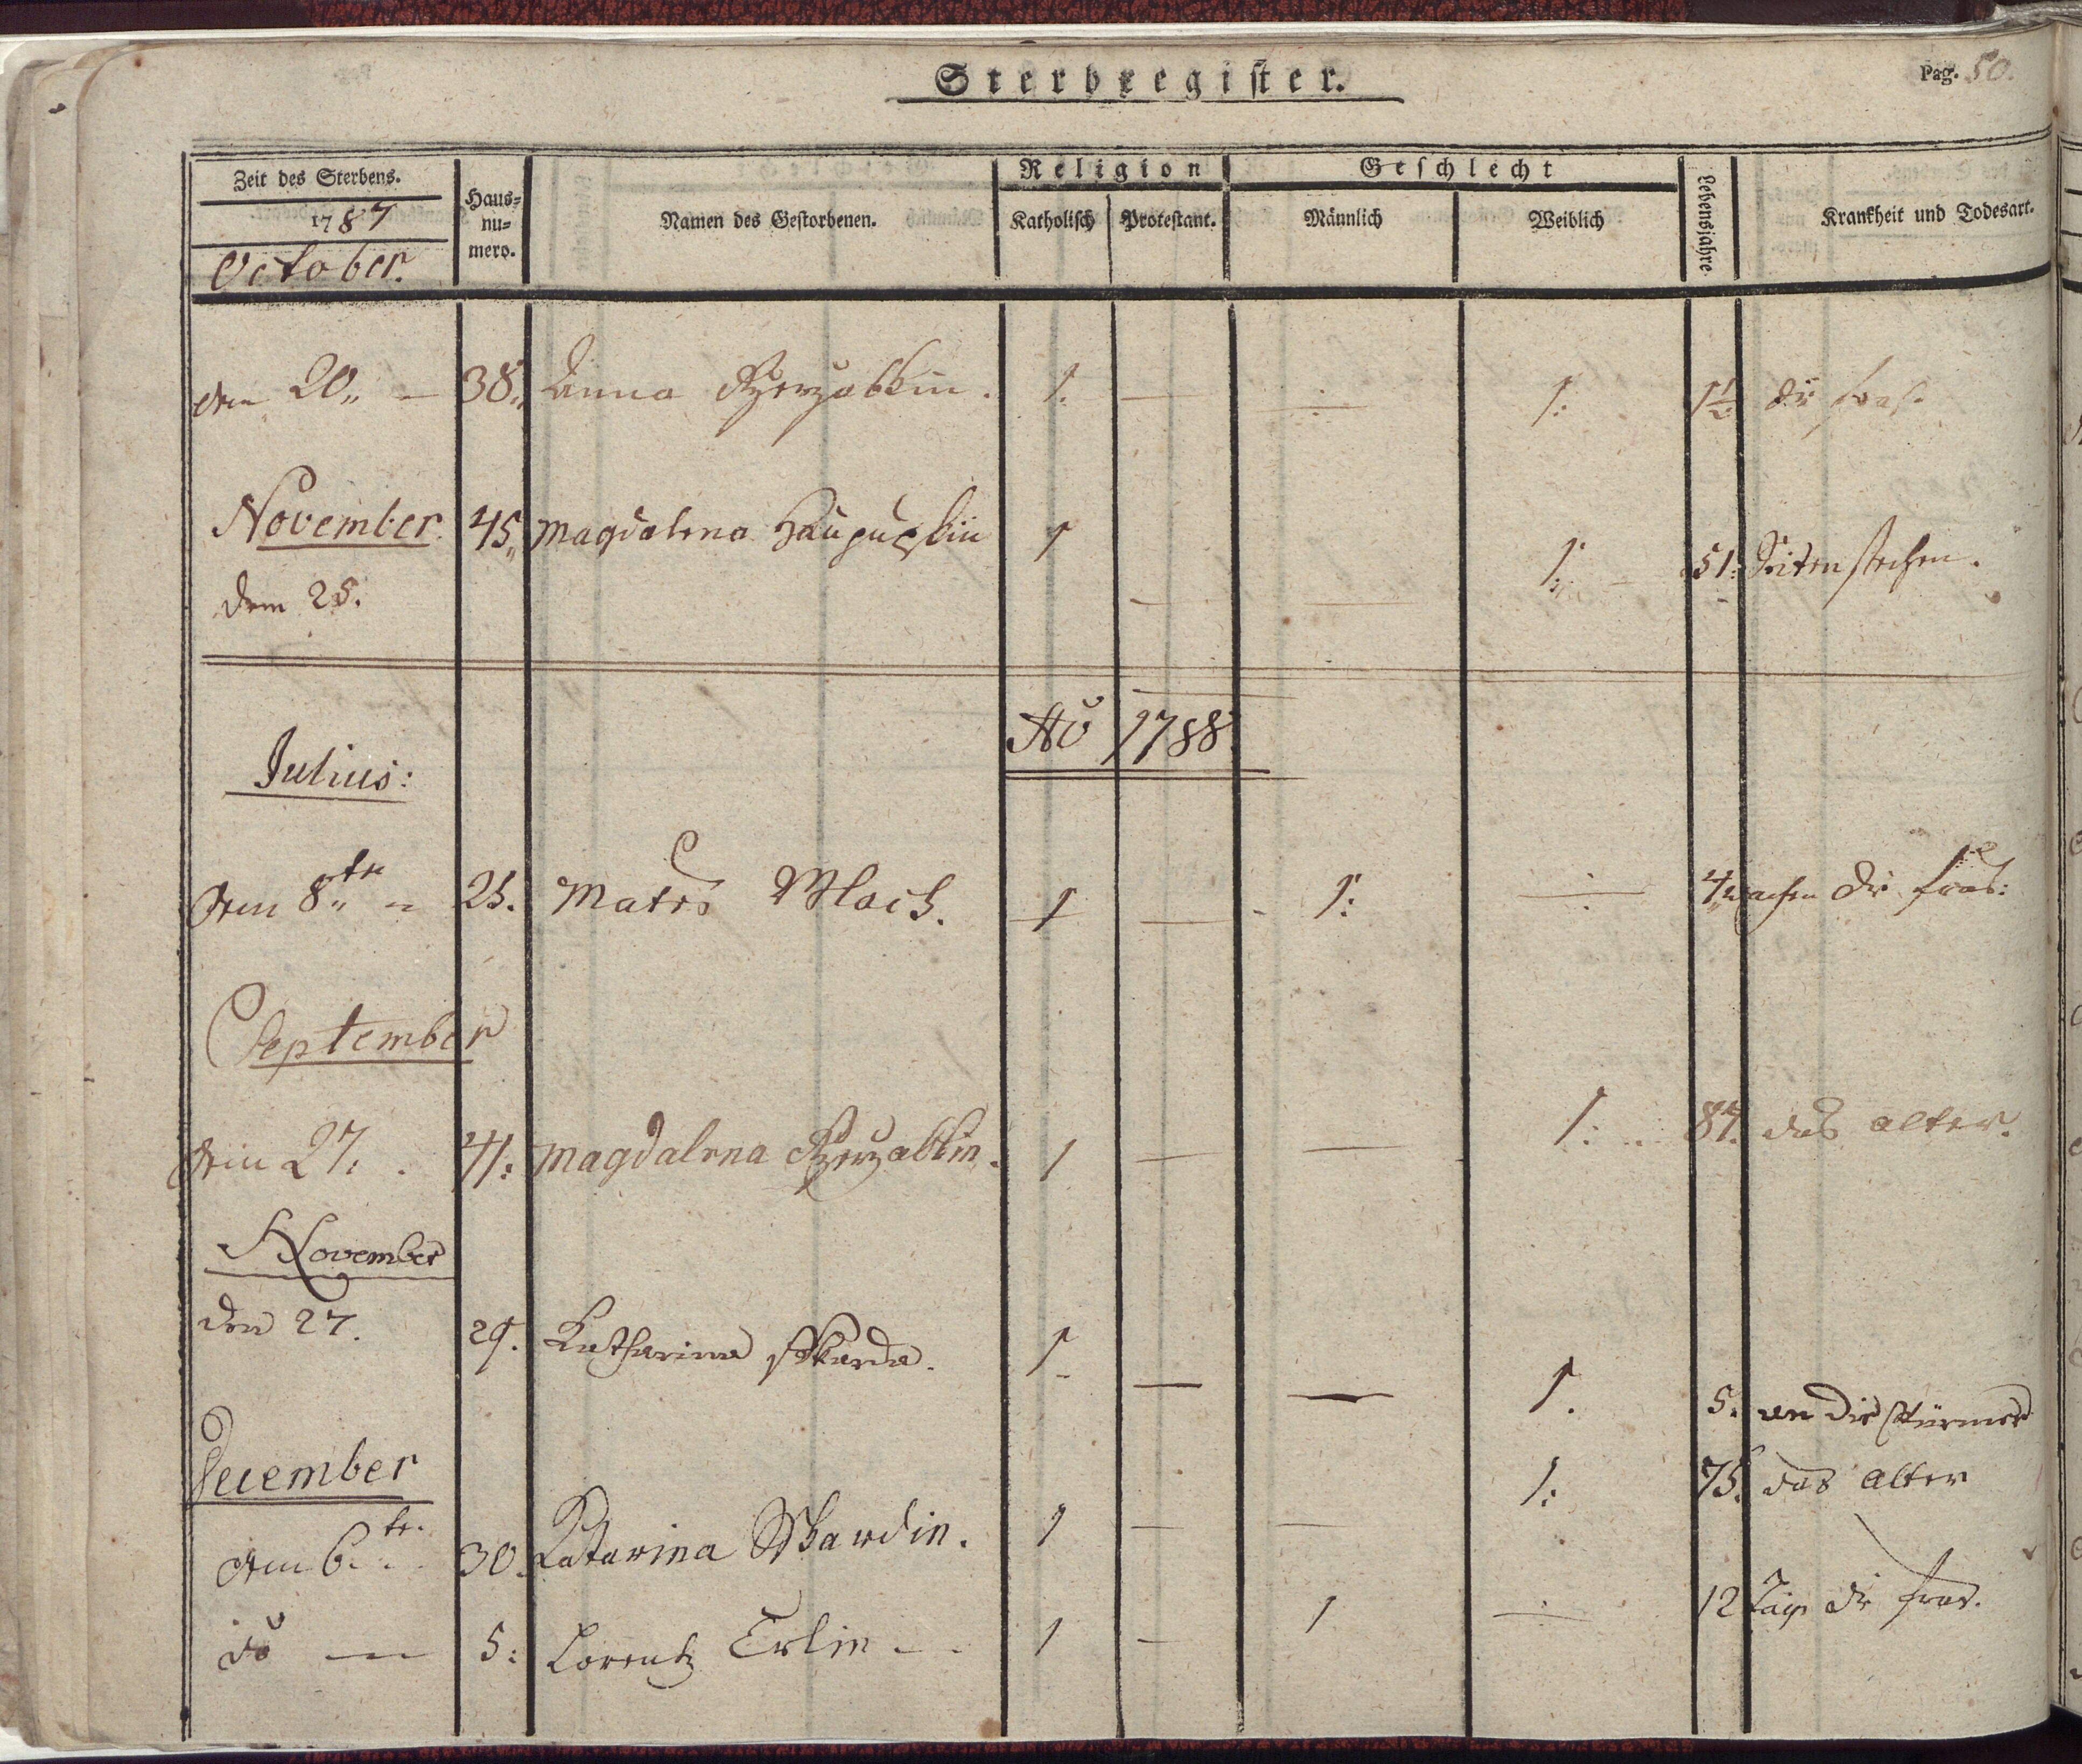 Sterbregister.
Pag. 50.
Zeit des Sterbens.
1787
October.
Haus=
nu=
mero.
Namen des Gestorbenen.
Religion
Katholisch Protestant.
Geschlecht
Männlich Weiblich
Lebensjahre
Krankheit und Todesart.
den 20,, — 38,, Anna . 1. — — 1: 1½ die fras.
November. 45,, Magdalena 1 — — 1: 51: Seitenstechen.
dem 25.
Aõ 1788.
Julius:
den 8ten 25. Mates Wlach. 1 — 1: — 4 wochen die fras:
September
den 27. 41: Magdalena 1 — — 1: 87. das alter.
November
den 27. 29. Katharina Skarda. 1 — — 1. 5. an die
December
den 6.te. 30. Katarina Skardin. 1 — — 1: 75. das alter
do — 5: Lorentz Erlin — 1 — 1 — 12 Täge die fras.